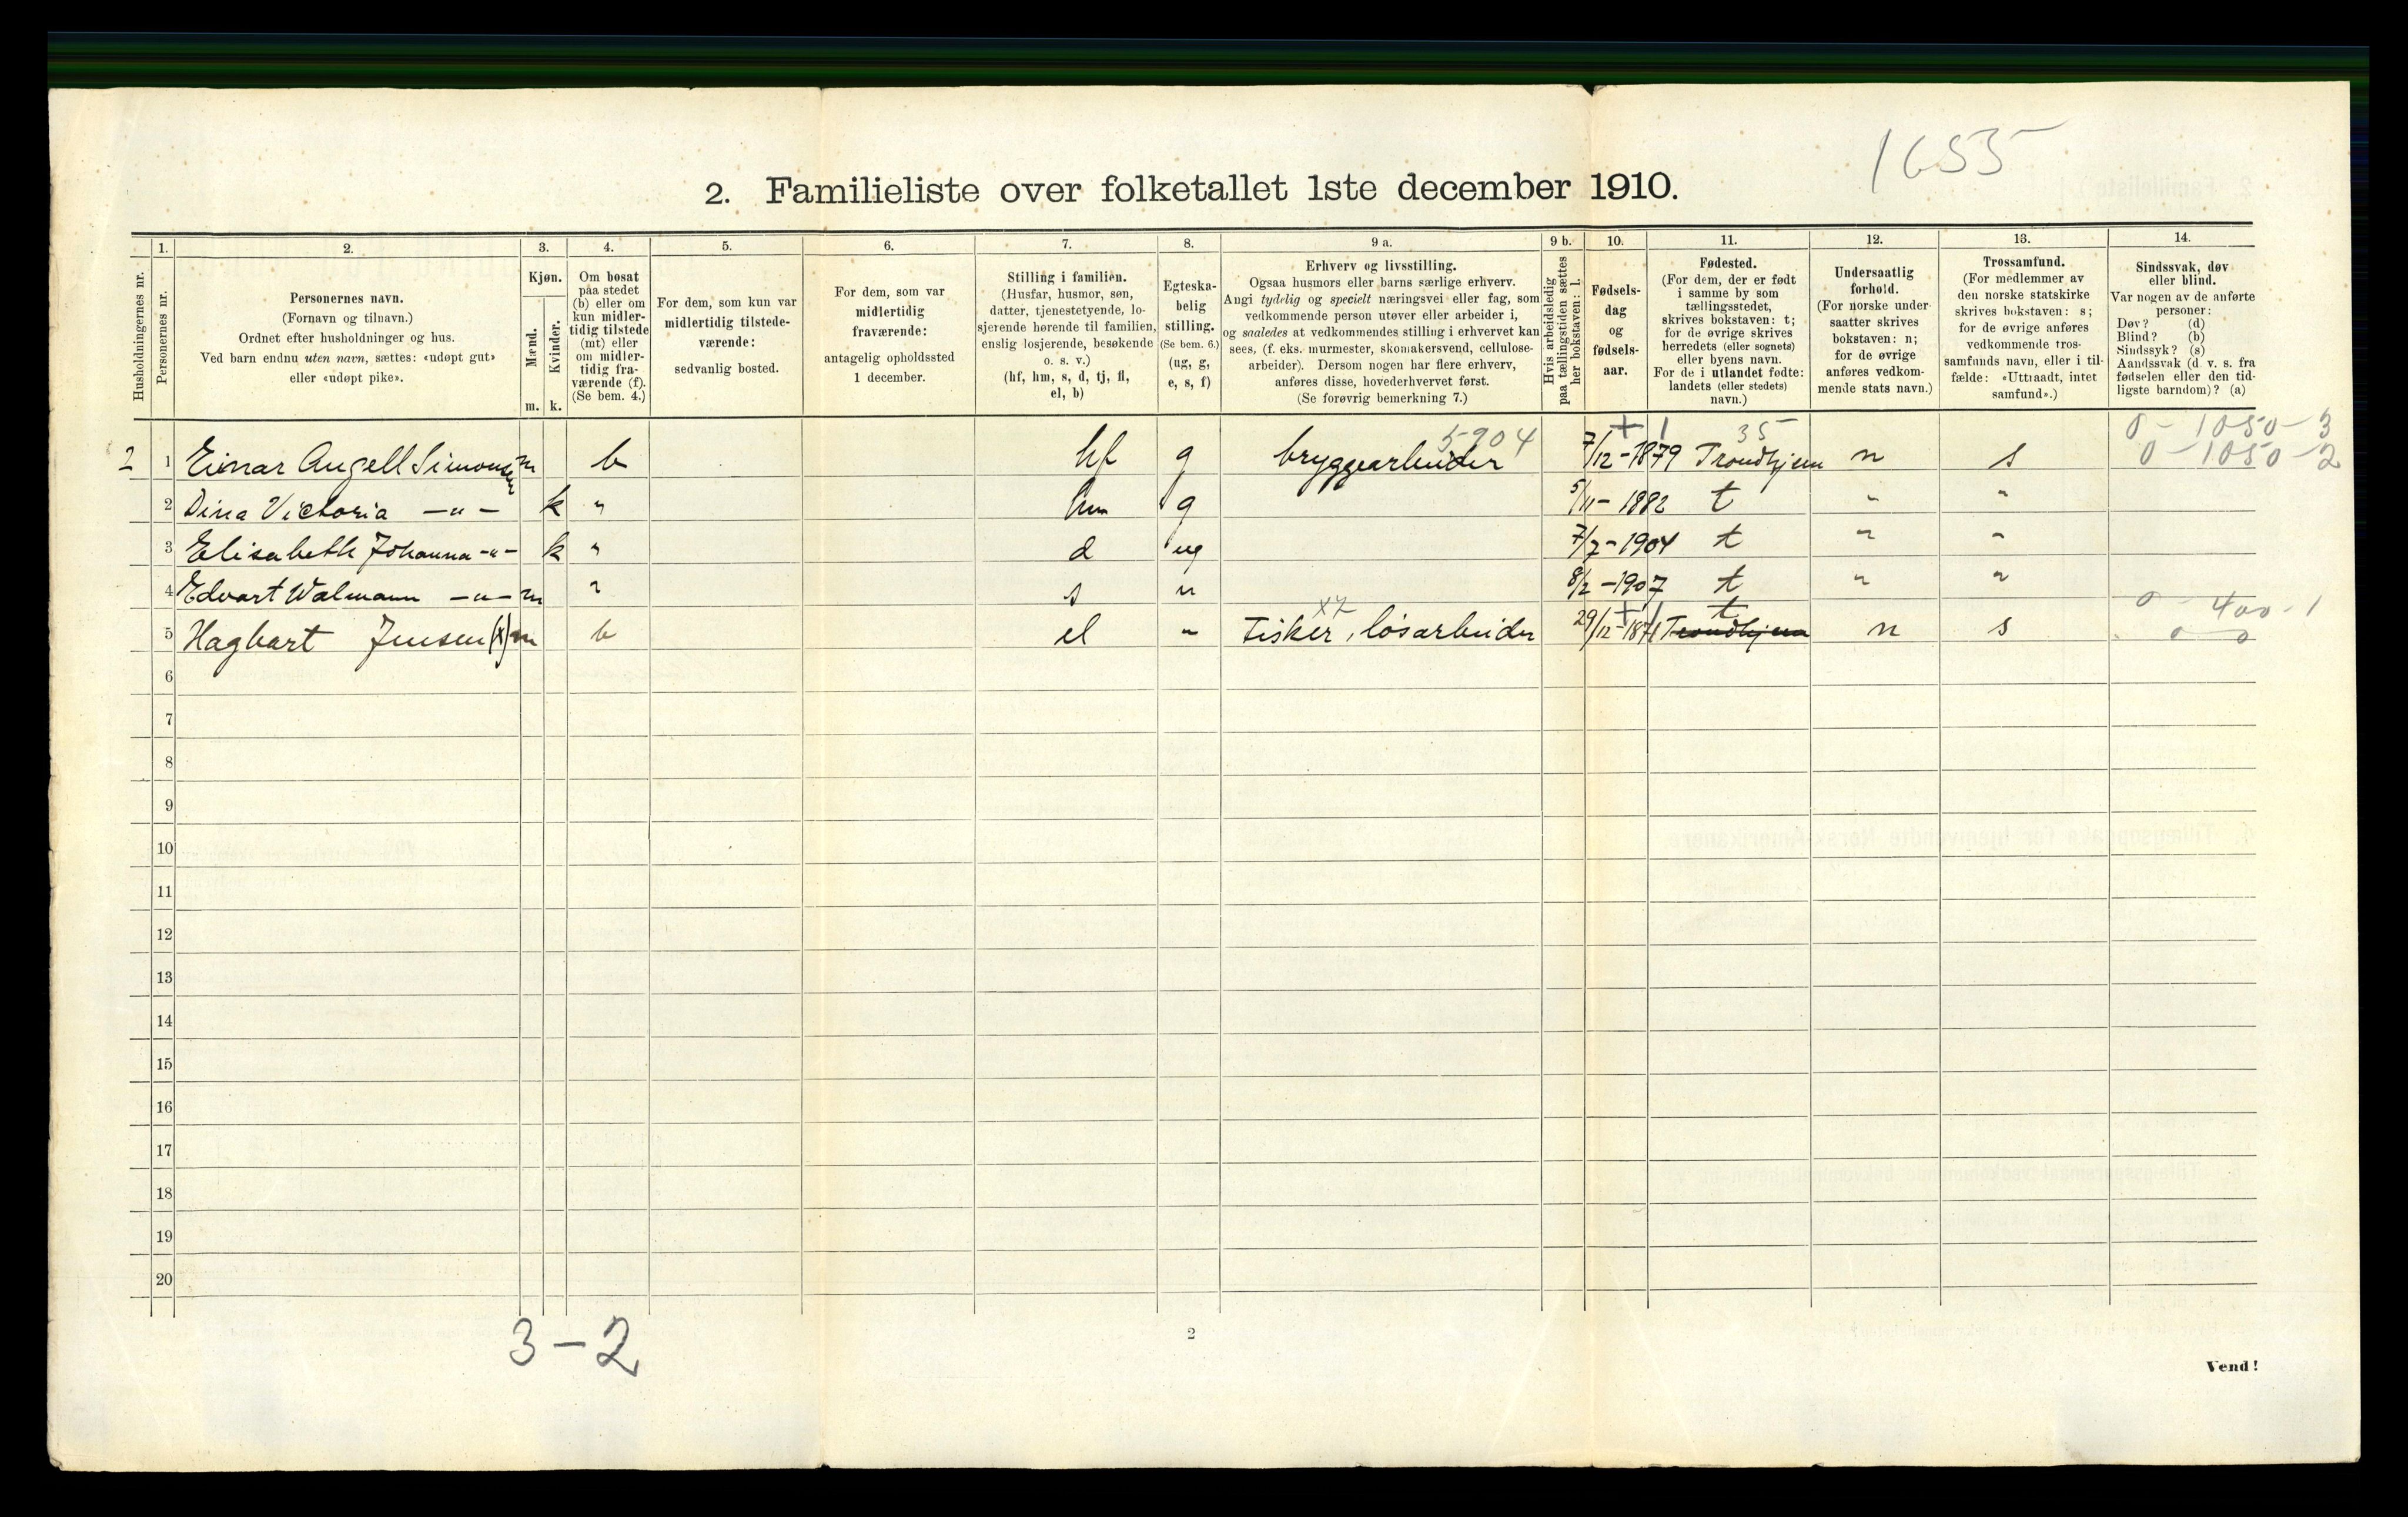 1655
2. Familieliste over folketallet 1ste december 1910.
1. 2. 3. 4. 5. 6. 7. 8. 9 a. 9 b. 10. 11. 12. 13. 14.
Husholdningernes nr.
Personernes nr.
Personernes navn.
(Fornavn og tilnavn.)
Ordnet efter husholdninger og hus.
Ved barn endnu uten navn, sættes: «udøpt gut»
eller «udøpt pike».
Kjøn.
Mænd.
Kvinder.
m. k.
Om bosat
paa stedet
(b) eller om
kun midler-
tidig tilstede
(mt) eller
om midler-
tidig fra-
værende (f).
(Se bem. 4.)
For dem, som kun var
midlertidig tilstede-
værende:
sedvanlig bosted.
For dem, som var
midlertidig
fraværende:
antagelig opholdssted
1 december.
Stilling i familien.
(Husfar, husmor, søn,
datter, tjenestetyende, lo-
sjerende hørende til familien,
enslig losjerende, besøkende
o. s. v.)
(hf, hm, s, d, tj, fl,
el, b)
Egteska-
belig
stilling.
(Se bem. 6.)
(ug, g,
e, s, f)
Erhverv og livsstilling.
Ogsaa husmors eller barns særlige erhverv.
Angi tydelig og specielt næringsvei eller fag, som
vedkommende person utøver eller arbeider i,
og saaledes at vedkommendes stilling i erhvervet kan
sees, (f. eks. murmester, skomakersvend, cellulose-
arbeider). Dersom nogen har flere erhverv,
anføres disse, hovederhvervet først.
(Se forøvrig bemerkning 7.)
Hvis arbeidsledig
paa tællingstiden sættes
her bokstaven: l.
Fødsels-
dag
og
fødsels-
aar.
Fødested.
(For dem, der er født
i samme by som
tællingsstedet,
skrives bokstaven: t;
for de øvrige skrives
herredets (eller sognets)
eller byens navn.
For de i utlandet fødte:
landets (eller stedets)
navn.)
Undersaatlig
forhold.
(For norske under-
saatter skrives
bokstaven: n;
for de øvrige
anføres vedkom-
mende stats navn.)
Trossamfund.
(For medlemmer av
den norske statskirke
skrives bokstaven: s;
for de øvrige anføres
vedkommende tros-
samfunds navn, eller i til-
fælde: «Uttraadt, intet
samfund».)
Sindssvak, døv
eller blind.
Var nogen av de anførte
personer:
Døv? (d)
Blind? (b)
Sindssyk? (s)
Aandssvak (d. v. s. fra
fødselen eller den tid-
ligste barndom)? (a)
5904 + 1 35 0 - 1050 - 3
2 1 Einar Angell Simonsen m b hf g bryggearbeider 7/12-1879 Trondhjem n s 0 - 1050 - 2
2 Dina Victoria -"- k " hm g 5/11-1882 t " "
3 Elisabeth Johanna -"- k " d ug 7/7-1904 t " "
4 Edvart Walmann -"- m " s " 8/2-1907 t " "
+ 1 t 0 400 - 1
5 Hagbart Jensen (x) m b el " Fisker, løsarbeider 29/12-1871 Trondhjem n s 0 0
6
7
8
9
10
11
12
13
14
15
16
17
18
19
20
3-2
2
Vend!